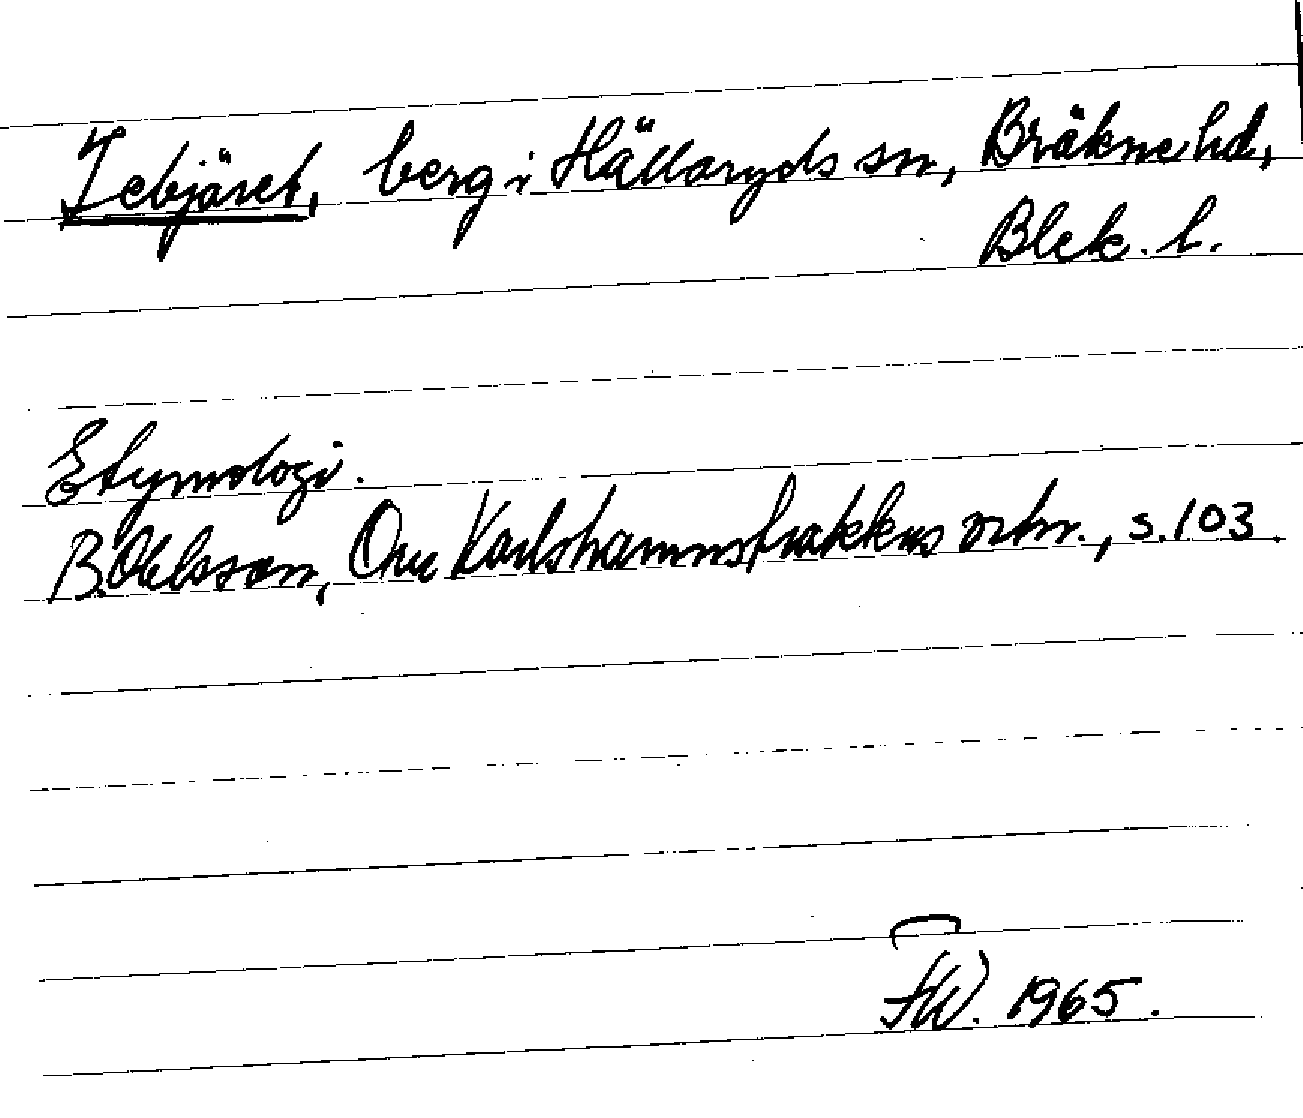 Iebjäret, berg i Hällaryds sn, Bräkne hd,
Blek. l.
Etymologi.
B. Ohlsson, Om Karlshamnstraktens ortn., s. 103.
FW. 1965.